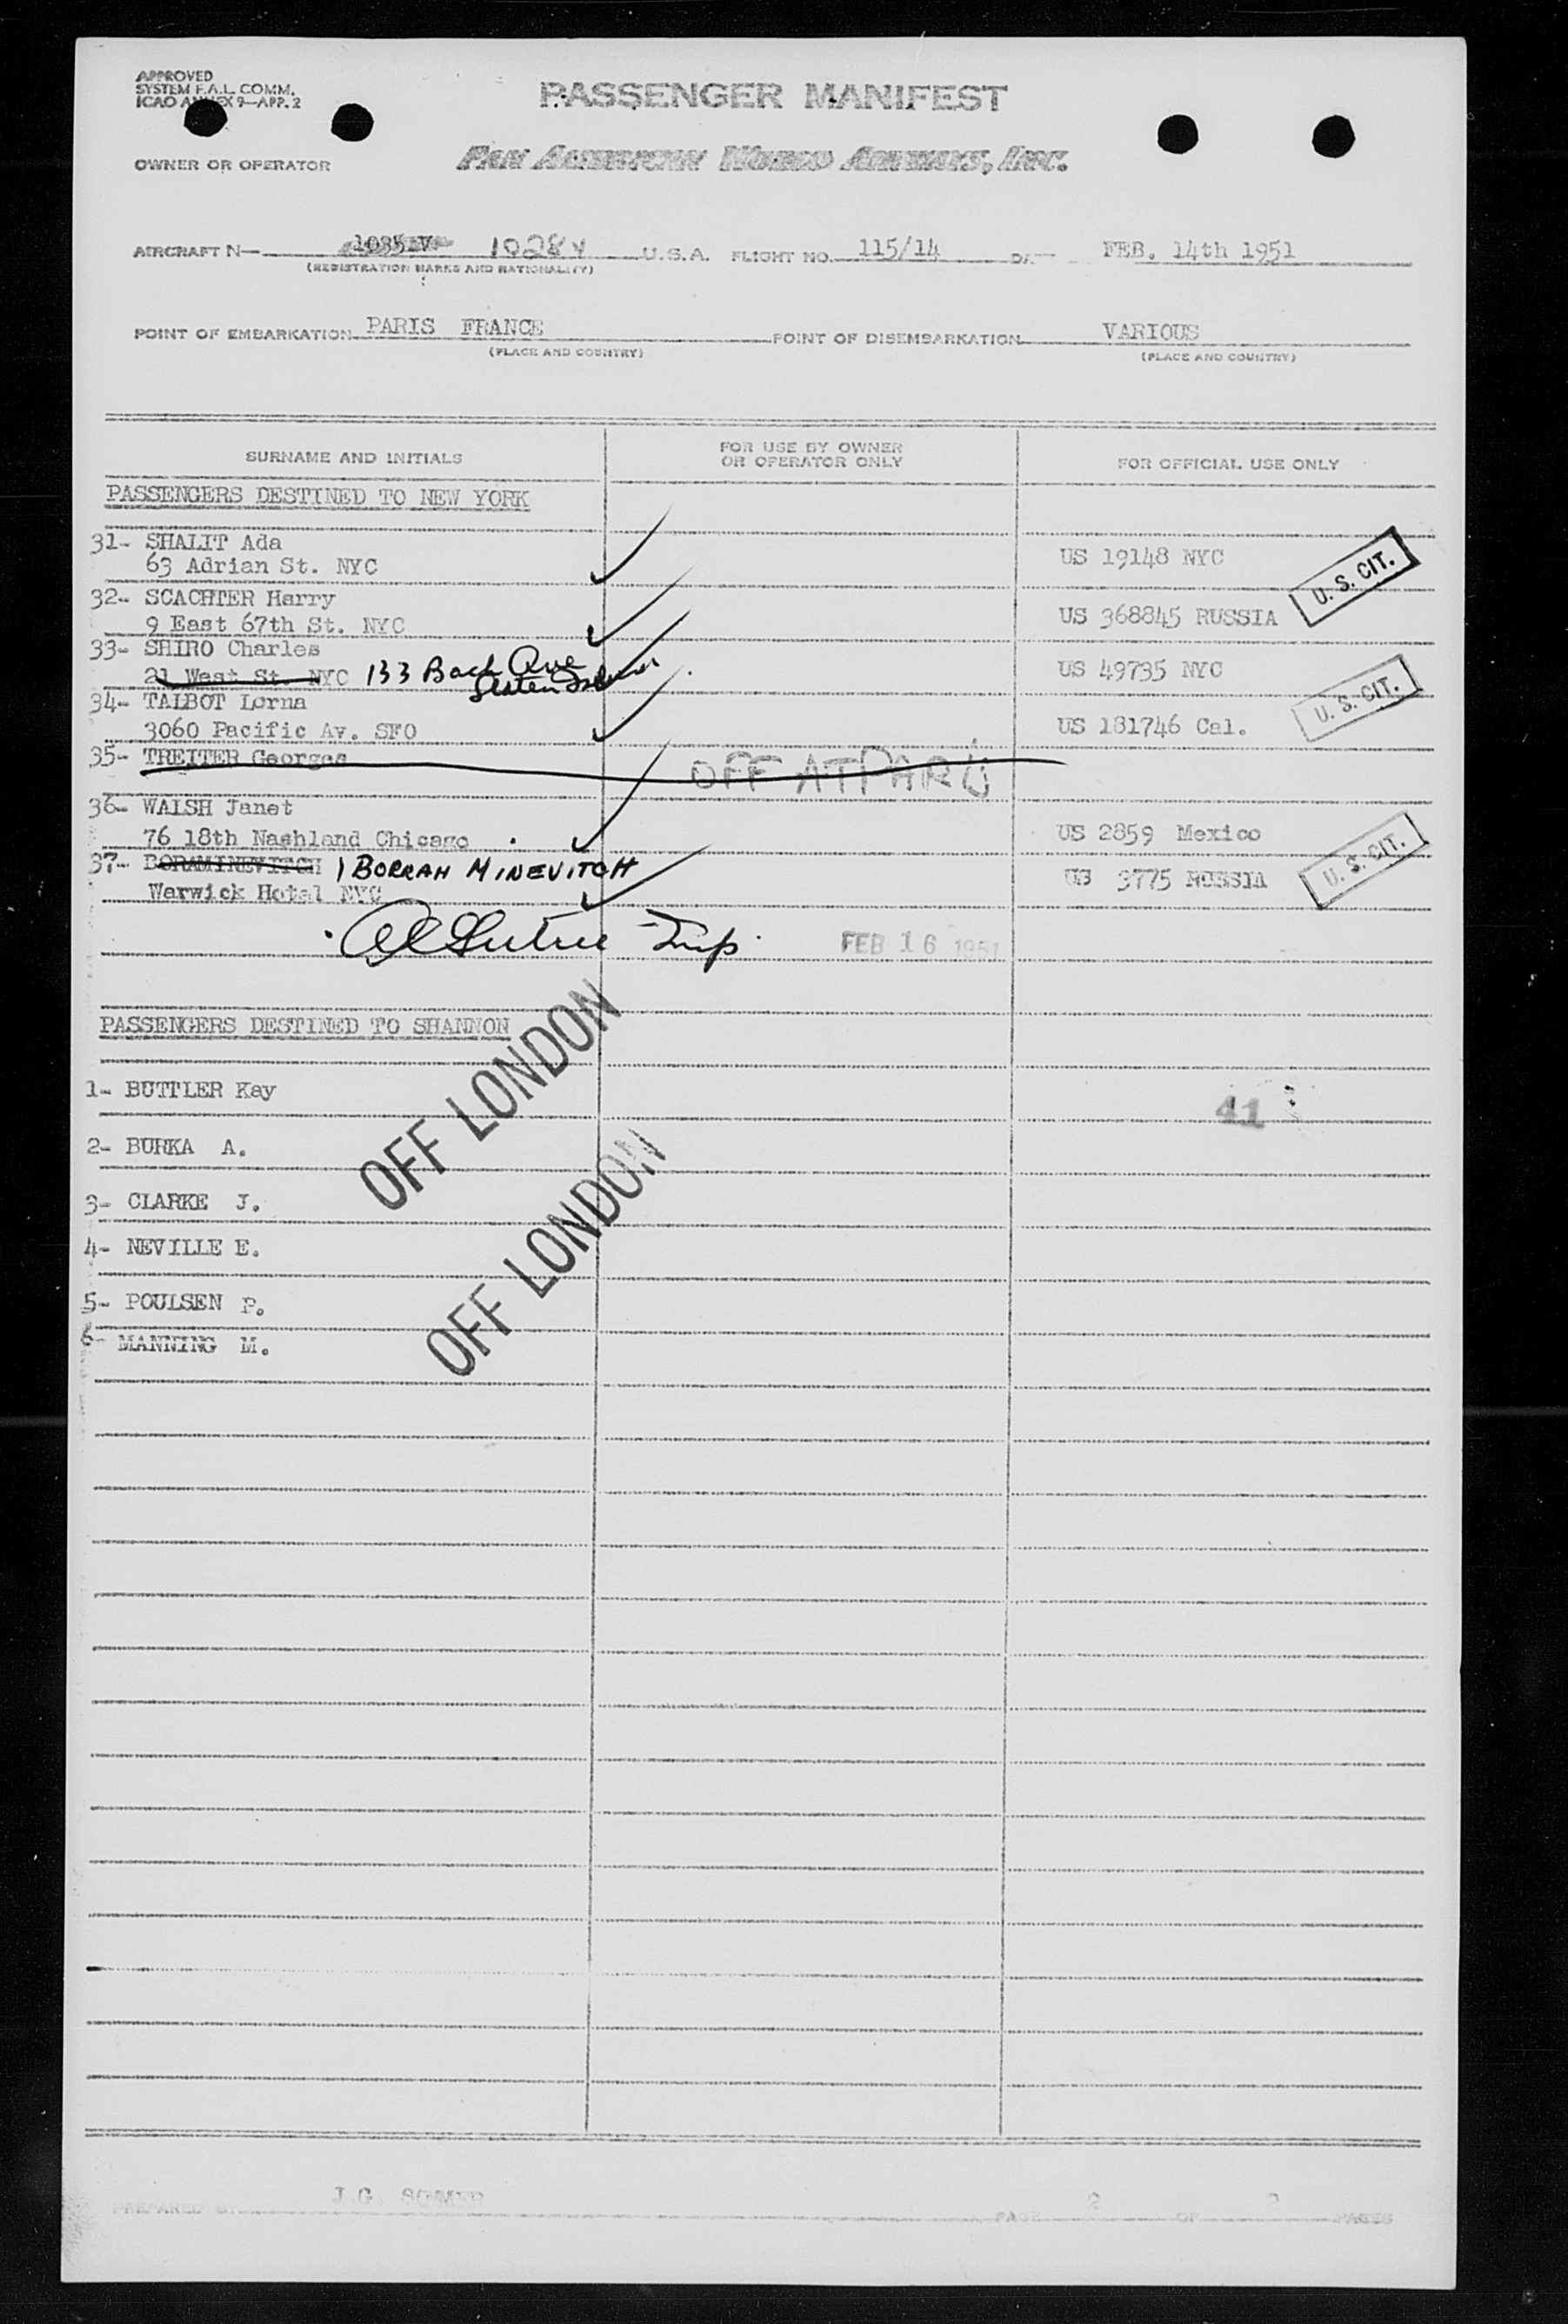 APPROVED
SYSTEM F.A.L. COMM.
ICAO ANNEX 9—APP. 2
PASSENGER MANIFEST
OWNER OR OPERATOR
PAN AMERICAN WORLD AIRWAYS, INC.
AIRCRAFT N— 1035V 1028V U.S.A. FLIGHT NO. 115/14 FEB. 14th 1951
(REGISTRATION MARKS AND NATIONALITY)
POINT OF EMBARKATION PARIS FRANCE POINT OF DISEMBARKATION VARIOUS
(PLACE AND COUNTRY) (PLACE AND COUNTRY)
SURNAME AND INITIALS
FOR USE BY OWNER
OR OPERATOR ONLY
FOR OFFICIAL USE ONLY
PASSENGERS DESTINED TO NEW YORK
31- SHALIT Ada
63 Adrian St. NYC US 19148 NYC
U. S. CIT.
32- SCACHTER Harry
9 East 67th St. NYC US 368845 RUSSIA
33- SHIRO Charles
21 West St. NYC 133 Bach Ave US 49735 NYC
Staten Island
34- TALBOT Lorna
3060 Pacific Av. SFO US 181746 Cal.
U. S. CIT.
35- TREITER Georges OFF AT PARIS
36- WALSH Janet
76 18th Nashland Chicago US 2859 Mexico
37- BORAMINEVITCH BORRAH MINEVITCH
Warwick Hotel NYC US 3775 RUSSIA
U. S. CIT.
Insp. FEB 16 1951
PASSENGERS DESTINED TO SHANNON
OFF LONDON
1- BUTTLER Kay
41
2- BURKA A.
3- CLARKE J.
OFF LONDON
4- NEVILLE E.
5- POULSEN P.
6- MANNING M.
J.G. SOMER
PREPARED BY PAGE 2 OF PAGES